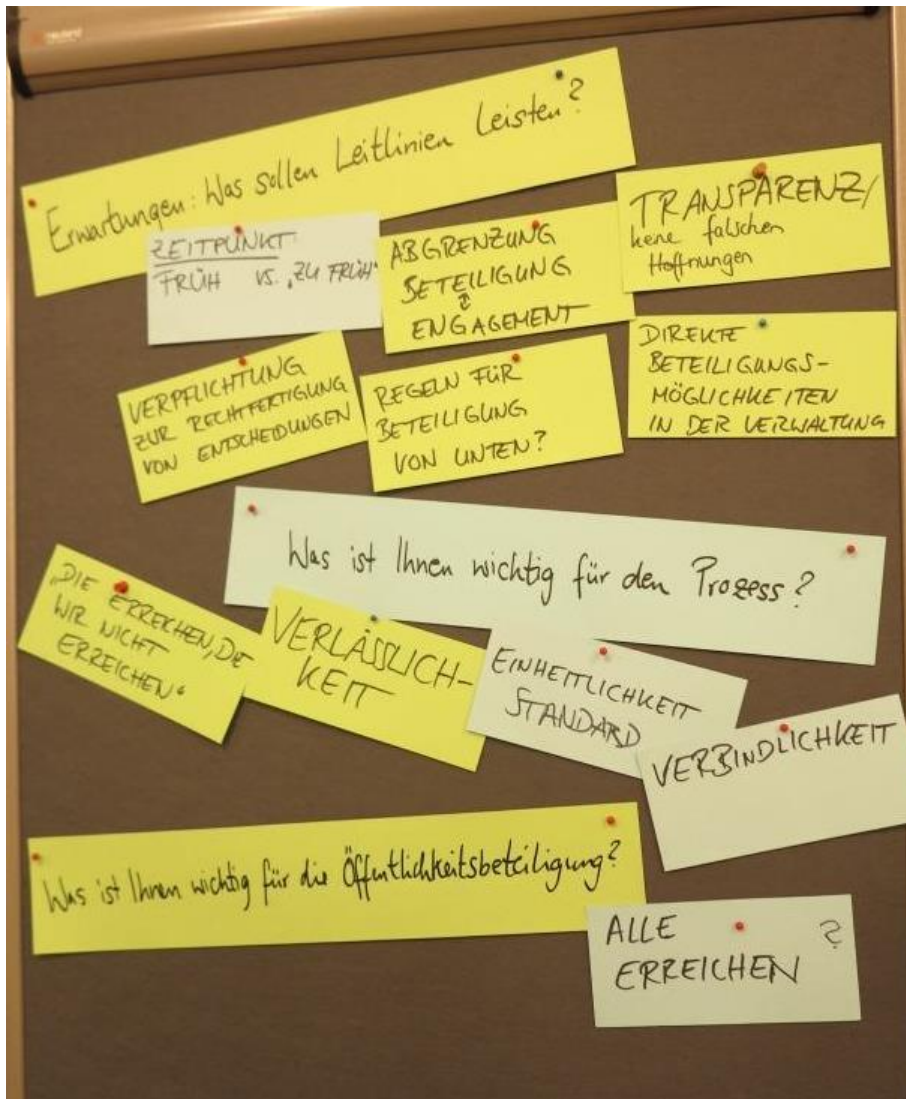 neuland
Erwartungen: Was sollen Leitlinien leisten?
ZEITPUNKT:
FRÜH VS. „ZU FRÜH"
ABGRENZUNG
BETEILIGUNG
↕
ENGAGEMENT
TRANSPARENZ/
keine falschen
Hoffnungen
VERPFLICHTUNG
ZUR RECHTFERTIGUNG
VON ENTSCHEIDUNGEN
REGELN FÜR
BETEILIGUNG
VON UNTEN?
DIREKTE
BETEILIGUNGS-
MÖGLICHKEITEN
IN DER VERWALTUNG
Was ist Ihnen wichtig für den Prozess?
„DIE ERREICHEN, DIE
WIR NICHT
ERREICHEN"
VERLÄSSLICH-
KEIT
EINHEITLICHKEIT
STANDARD
VERBINDLICHKEIT
Was ist Ihnen wichtig für die Öffentlichkeitsbeteiligung?
ALLE ?
ERREICHEN